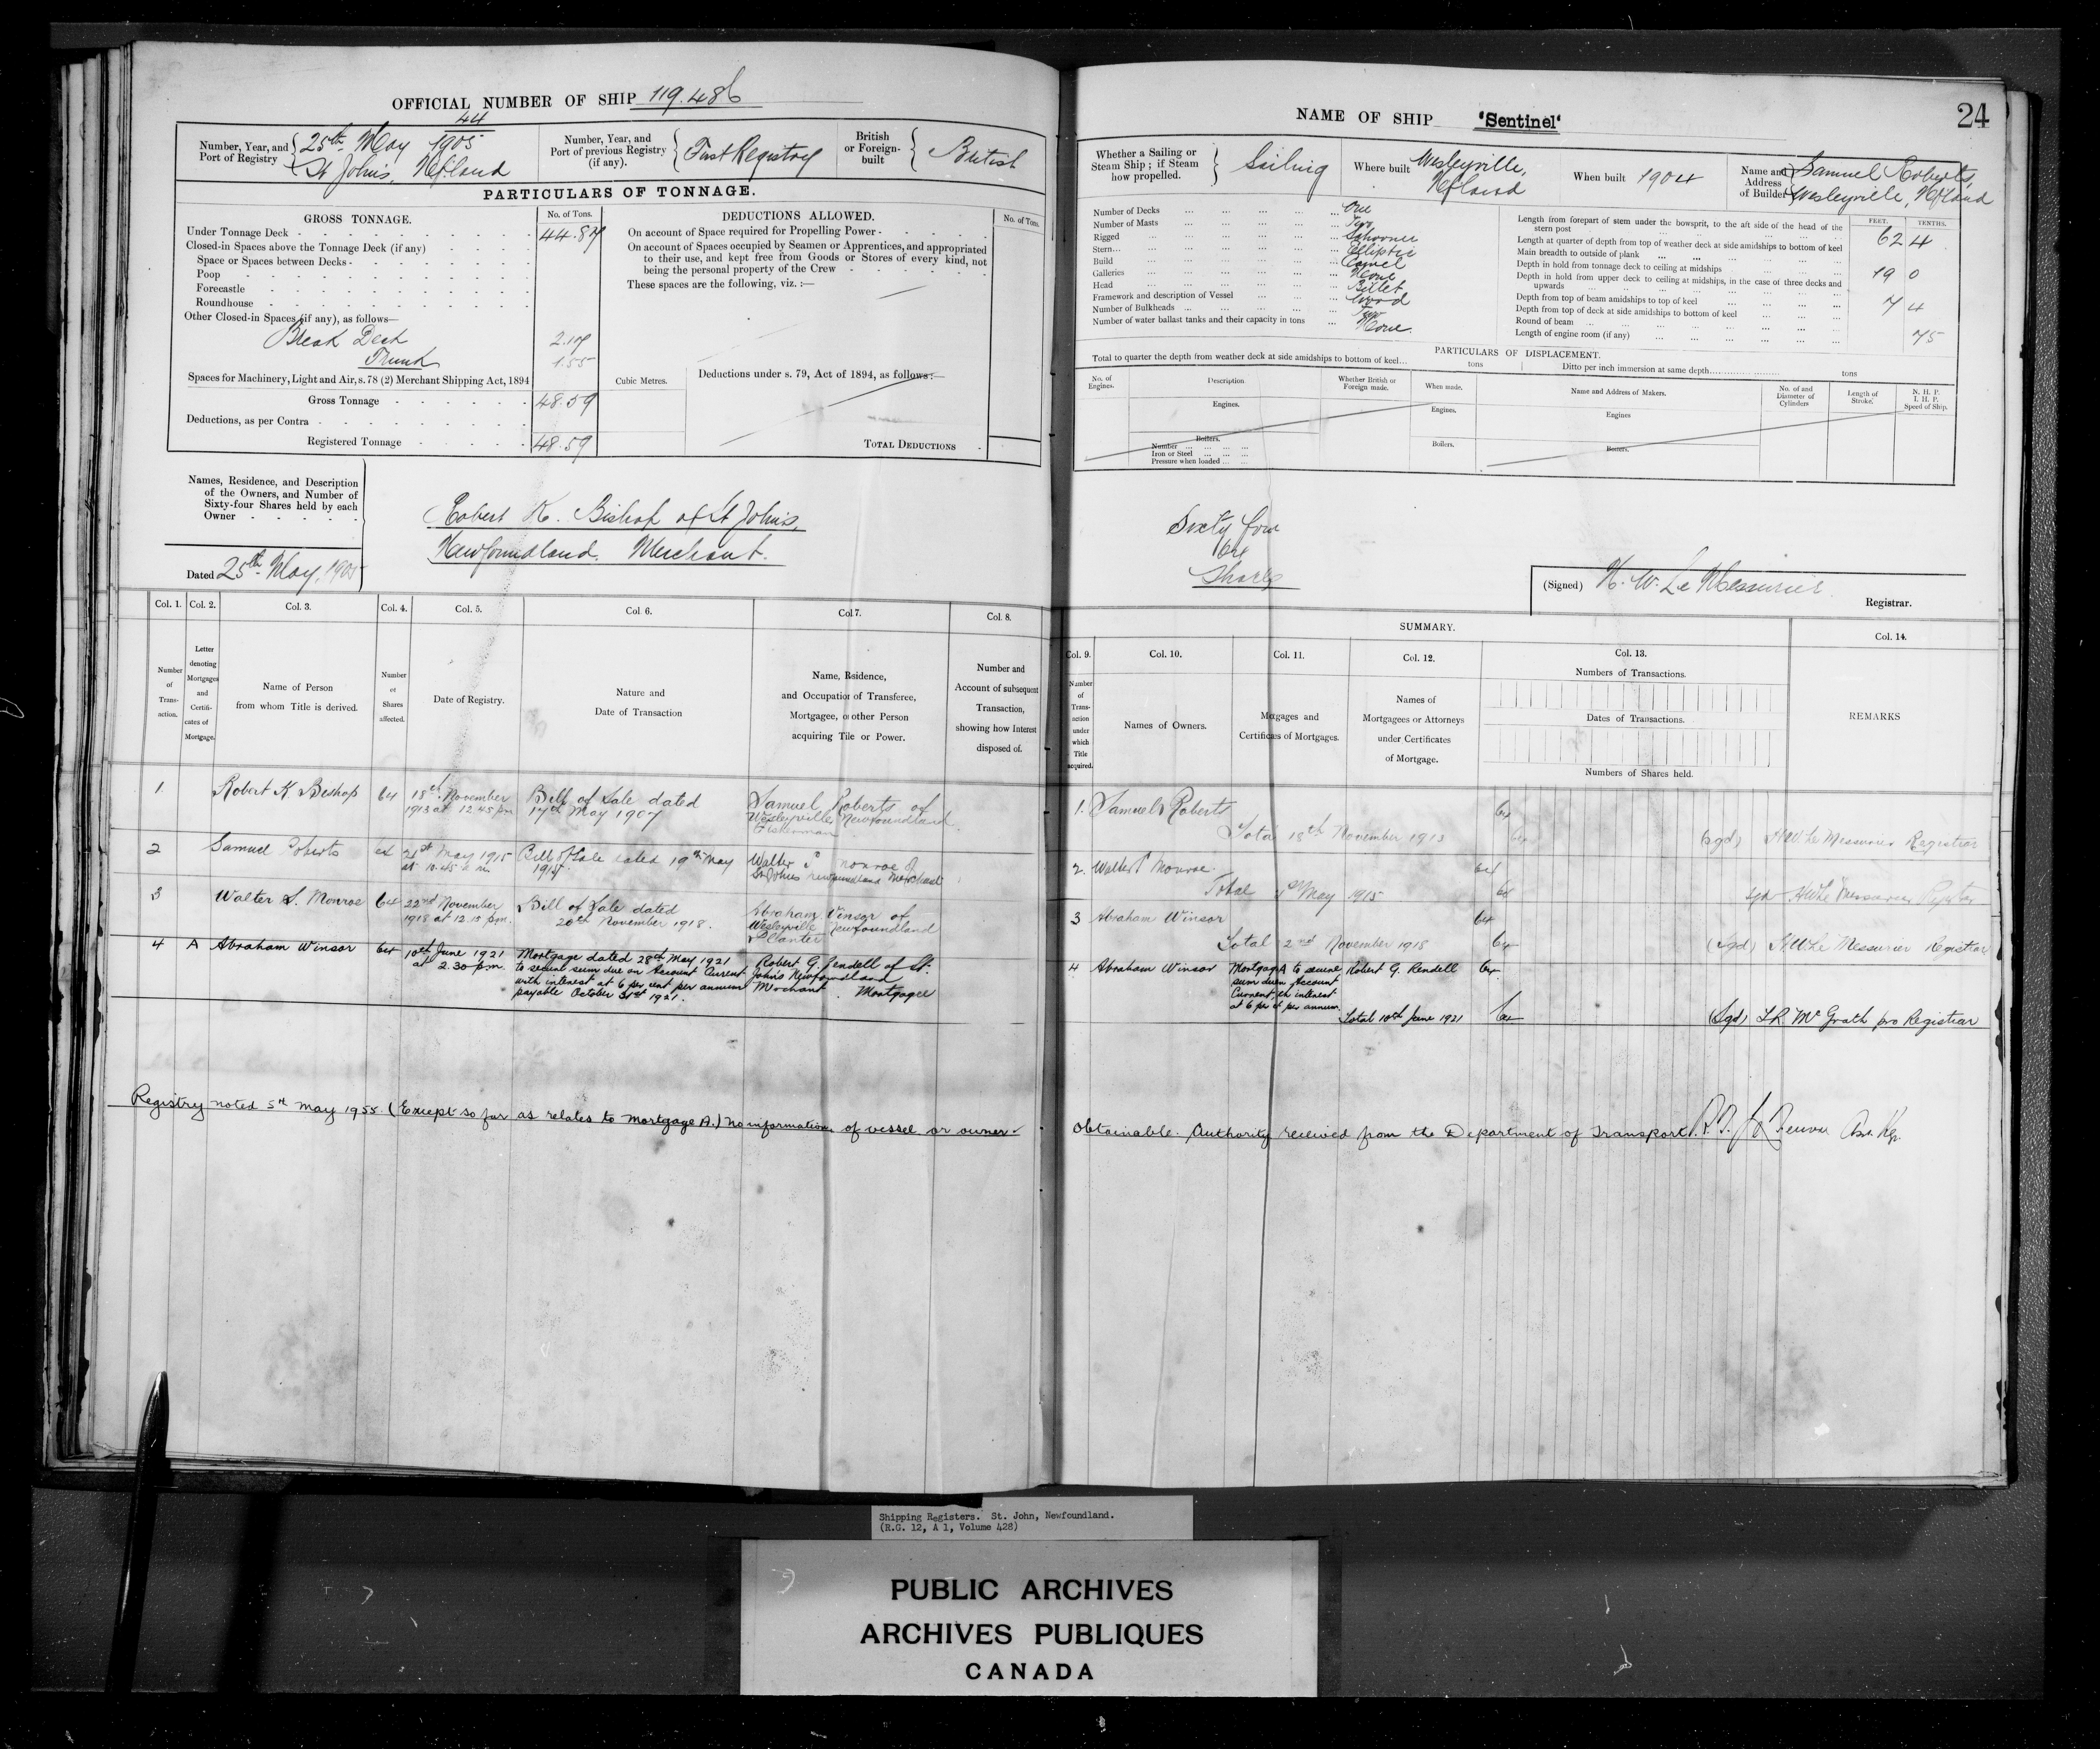 OFFICIAL NUMBER OF SHIP 119.486
Number, Year, and Port of Registry
44
25th May 1905
St Johns, Nfland
Number, Year, and Port of previous Registry (if any).
First Registry
British or Foreign-built
British
PARTICULARS OF TONNAGE.
GROSS TONNAGE.
No. of Tons.
Under Tonnage Deck 44.87
Closed-in Spaces above the Tonnage Deck (if any)
Space or Spaces between Decks
Poop
Forecastle
Roundhouse
Other Closed-in Spaces (if any), as follows—
Break Deck 2.17
Trunk 1.55
Spaces for Machinery, Light and Air, s.78 (2) Merchant Shipping Act, 1894
Gross Tonnage 48.59
Deductions, as per Contra
Registered Tonnage 48.59
Cubic Metres.
DEDUCTIONS ALLOWED.
No. of Tons.
On account of Space required for Propelling Power
On account of Spaces occupied by Seamen or Apprentices, and appropriated
to their use, and kept free from Goods or Stores of every kind, not
being the personal property of the Crew
These spaces are the following, viz. :—
Deductions under s. 79, Act of 1894, as follows:—
TOTAL DEDUCTIONS
Names, Residence, and Description
of the Owners, and Number of
Sixty-four Shares held by each
Owner
Dated 25th May, 1905
Robert K. Bishop of St Johns,
Newfoundland. Merchant.
Col. 1. Col. 2. Col. 3. Col. 4. Col. 5. Col 6. Col 7. Col. 8.
Number of Trans-action.
Letter denoting Mortgages and Certifi-cates of Mortgage.
Name of Person
from whom Title is derived.
Number of Shares affected.
Date of Registry.
Nature and
Date of Transaction
Name, Rsidence,
and Occupation of Transferee,
Mortgagee, or other Person
acquiring Tile or Power.
Number and
Account of subsequent
Transaction,
showing how Interest
disposed of.
1 Robert K. Bishop 64 18th November Bill of Sale dated Samuel Roberts of
1913 at 12.45 pm 17th May 1907 Wesleyville Newfoundland
Fisherman
2 Samuel Roberts 64 21st May 1915 Bill of Sale dated 19th May Walter S Monroe of
at 10.45 a m. 1915 St Johns Newfoundland Merchant
3 Walter S. Monroe 64 22nd November Bill of Sale dated Abraham Winsor of
1918 at 12.15 pm. 20th November 1918. Wesleyville Newfoundland
Planter
4 A Abraham Winsor 64 10th June 1921 Mortgage dated 28th May 1921 Robert G. Rendell of St.
at 2.30 pm. to secure sum due on Account Current Johns Newfoundland
with interest at 6 per cent per annum Merchant. Mortgagee
payable October 31st 1921.
Registry noted 5th May 1955. (Except so far as relates to Mortgage A.) No information of vessel or owner
NAME OF SHIP "Sentinel"
24
Whether a Sailing or
Steam Ship; if Steam
how propelled.
Sailing
Where built Wesleyville,
Nfland
When built 1904
Name and
Address
of Builder
Samuel Roberts,
Wesleyville, Nfland
Number of Decks One
Number of Masts Two
Rigged Schooner
Stern Elliptic
Build Carvel
Galleries None
Head Billet
Framework and description of Vessel Wood
Number of Bulkheads Two
Number of water ballast tanks and their capacity in tons None.
FEET. TENTHS.
Length from forepart of stem under the bowsprit, to the aft side of the head of the
stern post 62 4
Length at quarter of depth from top of weather deck at side amidships to bottom of keel
Main breadth to outside of plank 19 0
Depth in hold from tonnage deck to ceiling at midships 7 4
Depth in hold from upper deck to ceiling at midships, in the case of three decks and
upwards
Depth from top of beam amidships to top of keel
Depth from top of deck at side amidships to bottom of keel
Round of beam 75
Length of engine room (if any)
PARTICULARS OF DISPLACEMENT.
Total to quarter the depth from weather deck at side amidships to bottom of keel... tons
Ditto per inch immersion at same depth... tons
No. of Engines.
Description
Whether British or Foreign made.
When made.
Name and Address of Makers.
No. of and Diameter of Cylinders
Length of Stroke.
N. H. P.
I. H. P.
Speed of Ship.
Engines. Engines. Engines
Boilers. Boilers. Boilers.
Number
Iron or Steel
Pressure when loaded
Sixty four
64
Shares
(Signed) H. W. Le Messurier
Registrar.
SUMMARY.
Col. 9. Col. 10. Col. 11. Col. 12. Col. 13. Col. 14.
Number of Trans-action under which Title acquired.
Names of Owners.
Mortgages and
Certificates of Mortgages.
Names of
Mortgagees or Attorneys
under Certificates
of Mortgage.
Numbers of Transactions.
Dates of Transactions.
Numbers of Shares held.
REMARKS
1. Samuel Roberts 64
Total 18th November 1913 64 (sgd) H W Le Messurier Registrar
2. Walter S Monroe 64
Total May 1915 64 sgd H W Le Messurier Registrar
3 Abraham Winsor 64
Total 22nd November 1918 64 (Sgd) H W Le Messurier Registrar
4 Abraham Winsor Mortgage A to secure Robert G. Rendell 64
sum due on Account
Current, with interest
at 6 per ct per annum.
Total 10th June 1921 64 (Sgd) McGrath pro Registrar
obtainable. Authority received from the Department of Transport.
Shipping Registers. St. John, Newfoundland.
(R.G. 12, A 1, Volume 428)
PUBLIC ARCHIVES
ARCHIVES PUBLIQUES
CANADA